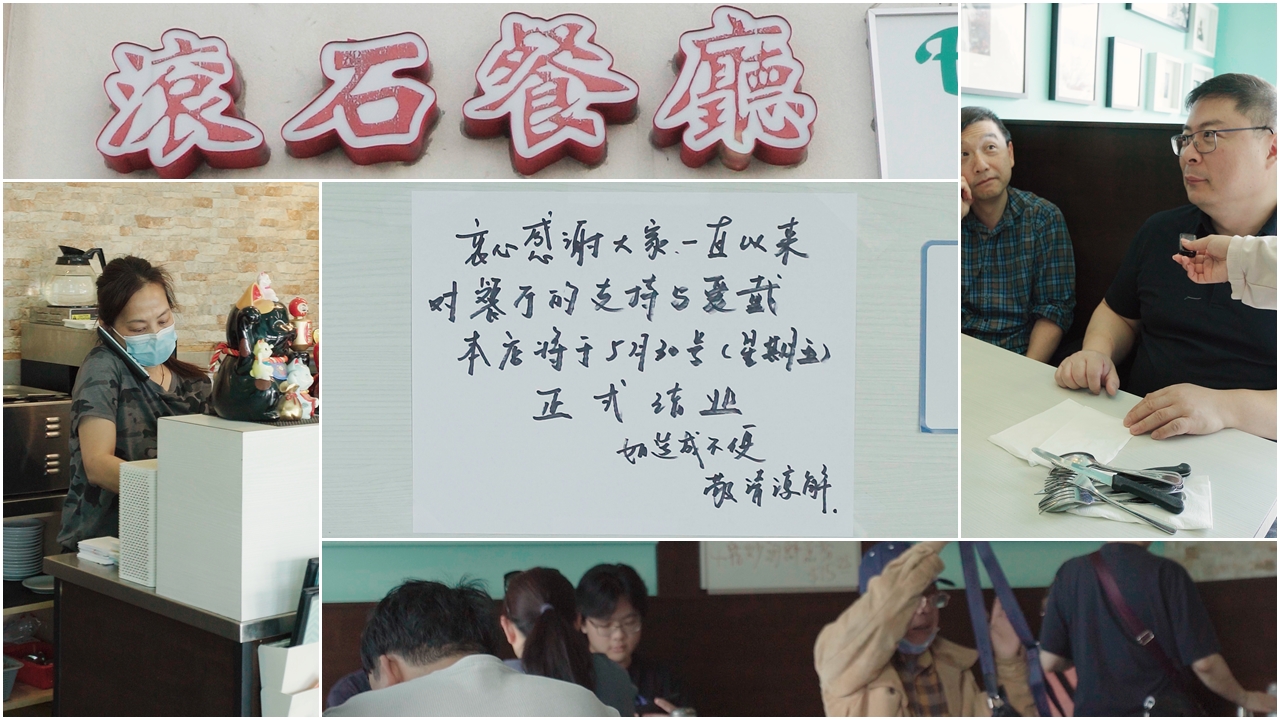 滚石餐廳
衷心感谢大家一直以来
对餐厅的支持与爱戴
本店将于5月30号(星期五)
正式结业
如造成不便
敬请谅解.